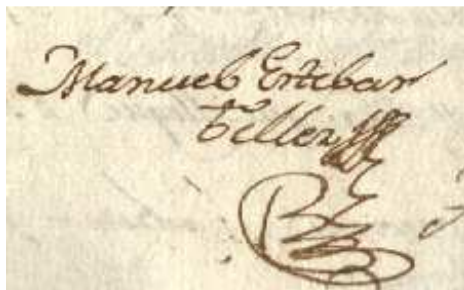 Manuel Esteban
tellez